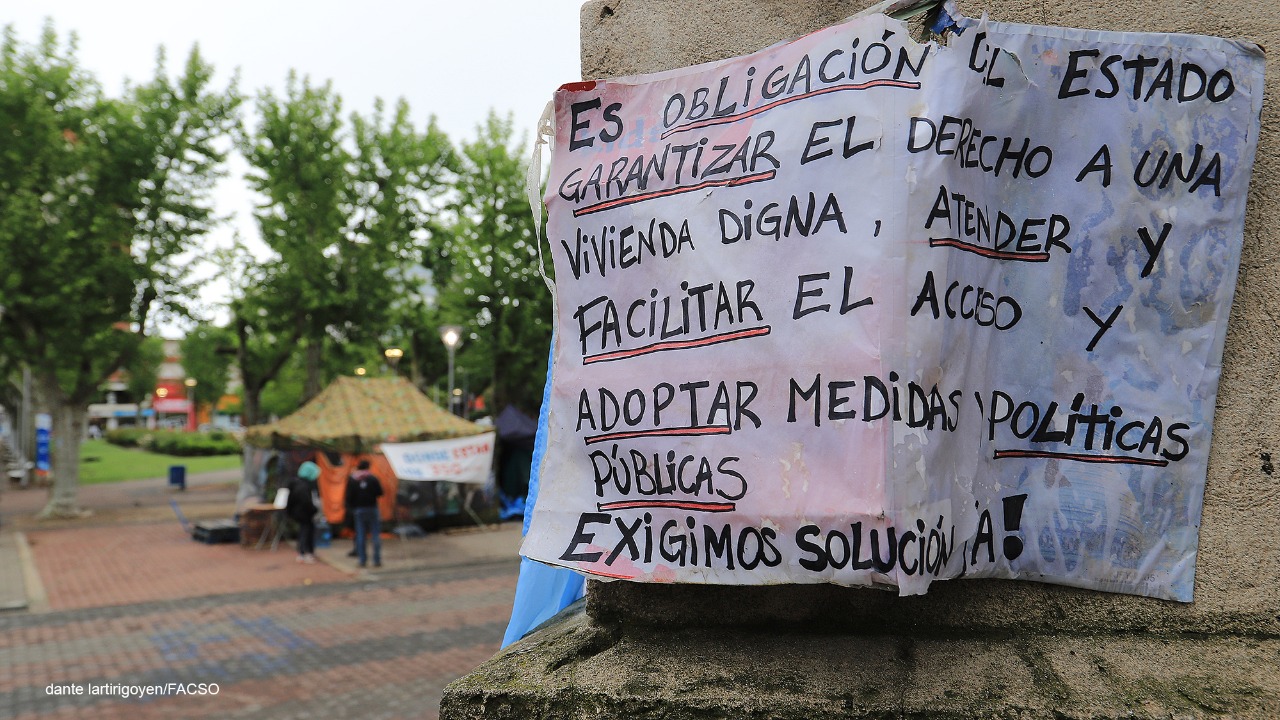 ES OBLIGACIÓN EL ESTADO
GARANTIZAR EL DERECHO A UNA
VIVIENDA DIGNA, ATENDER Y
FACILITAR EL ACCESO Y
ADOPTAR MEDIDAS POLÍTICAS
PÚBLICAS
EXIGIMOS SOLUCIÓN YA!
DONDE ESTAN
350
dante lartirigoyen/FACSO